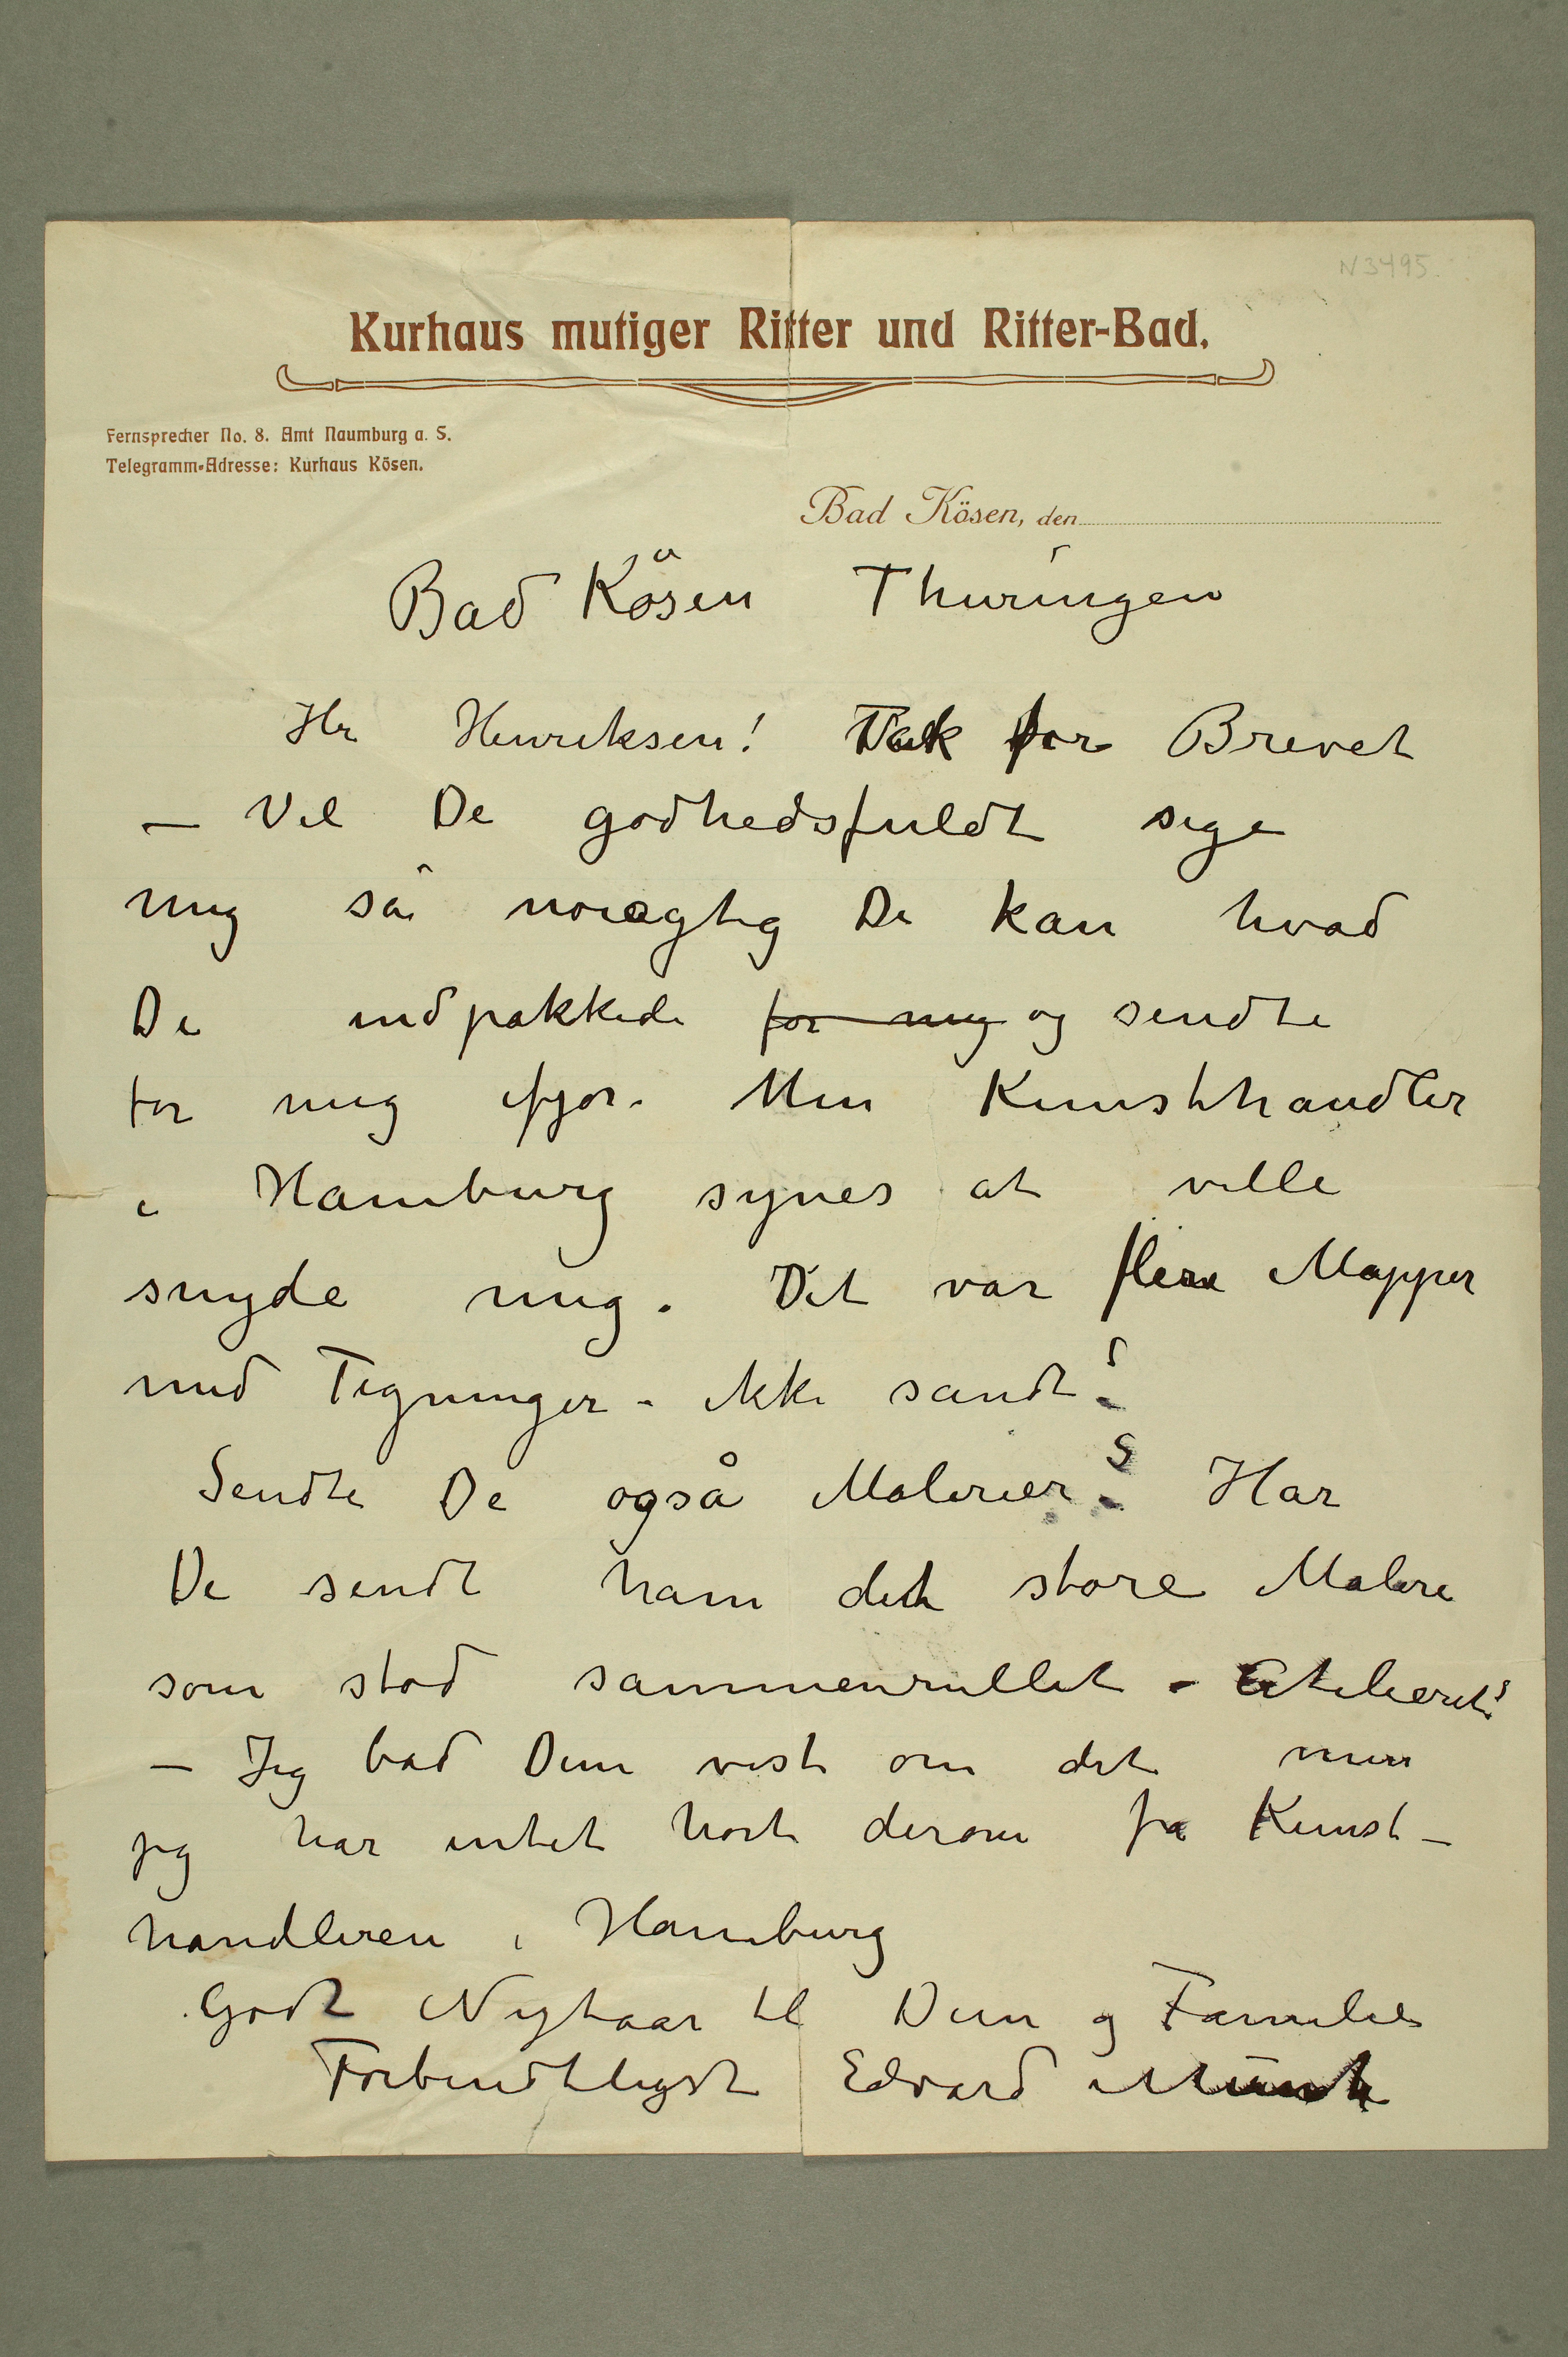 N 3495.
Kurhaus mutiger Ritter und Ritter-Bad.
Fernsprecher No. 8. Amt Naumburg a. S.
Telegramm-Adresse: Kurhaus Kösen.
Bad Kösen, den
Bad Kösen Thüringen
Hr Henriksen! Tak for Brevet
– Vil De godhedsfuldt sige
mig så nøiagtig De kan hvad
De indpakkede for mig og sendte
for mig ifjor. Min Kunsthandler
i Hamburg synes at ville
snyde mig. Det var flere Mapper
med Tegninger – ikke sandt?
Sendte De også Malerier? Har
De sendt ham det store Maleri
som stod sammenrullet i Atelieret?
– Jeg bad Dem vist om det men
jeg har intet hørt derom fra Kunst–
handleren i Hamburg
Godt Nytaar til Dem og Familie
Forbindtligst Edvard Munch